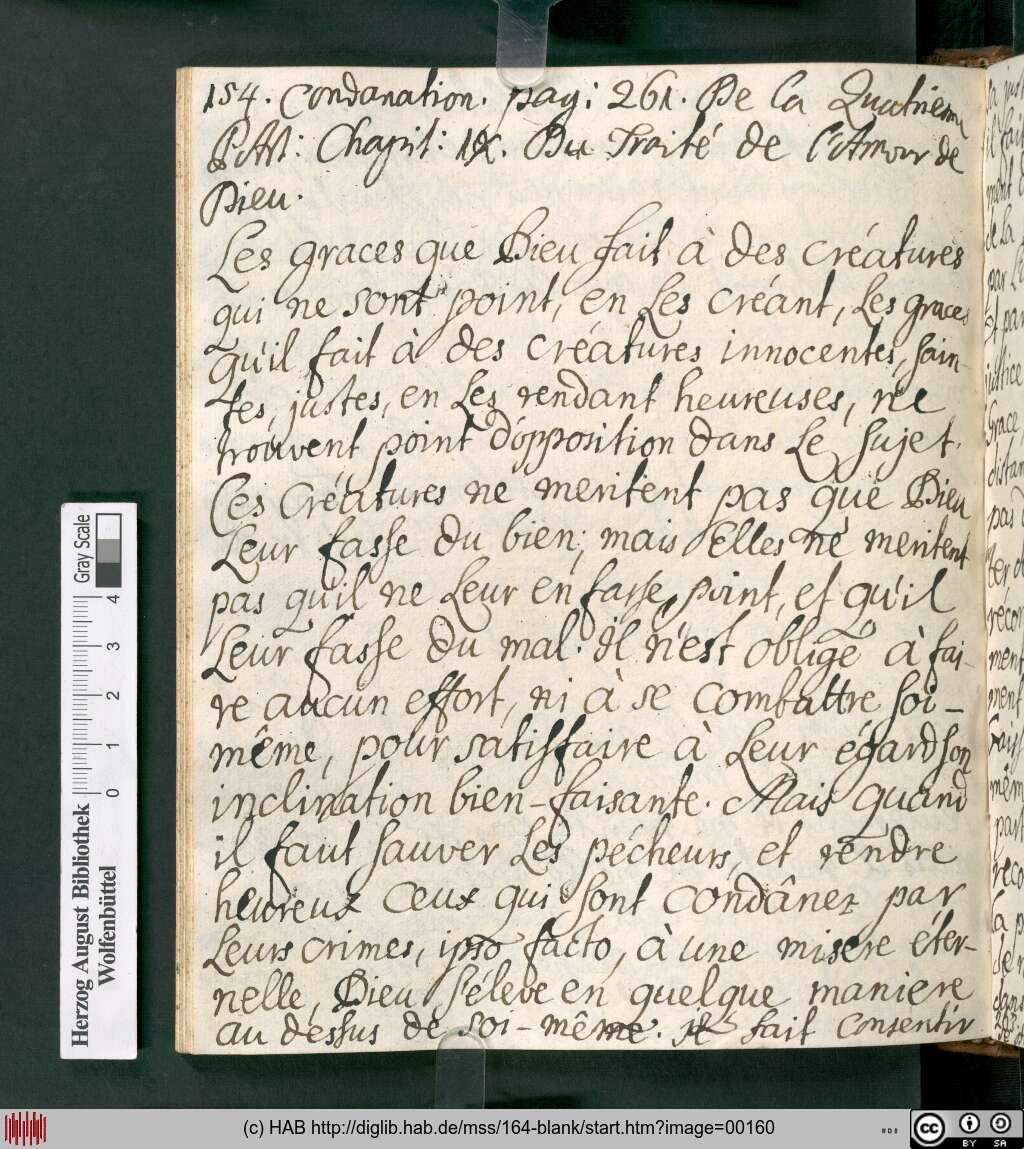 154. Condanation. pag: 261. De la Quatrieme
Part: Chapit: IX. Du Traité de l'Amour de
Dieu.
Les graces que Dieu fait à des créatures
qui ne sont point, en les créant, les graces
qu'il fait à des créatures innocentes, sain-
tes, justes, en les rendant heureuses, ne
trouvent point d'opposition dans le sujet.
Ces Créatures ne meritent pas que Dieu
leur fasse du bien; mais Elles ne meritent
pas qu'il ne leur en fasse point, et qu'il
leur fasse du mal. Il n'est obligé à fai-
re aucun effort, ni à se combattre soi-
même, pour satisfaire à leur égard son
inclination bien-faisante. Mais quand
il faut sauver les pécheurs, et rendre
heureux ceux qui sont condânez par
leurs crimes, ipso facto, à une misere éter-
nelle, Dieu s'éleve en quelque maniere
au dessus de soi-même. Il fait consentir
Herzog August Bibliothek
Wolfenbüttel
0 1 2 3 4
Gray Scale
(c) HAB http://diglib.hab.de/mss/164-blank/start.htm?image=00160
cc BY SA